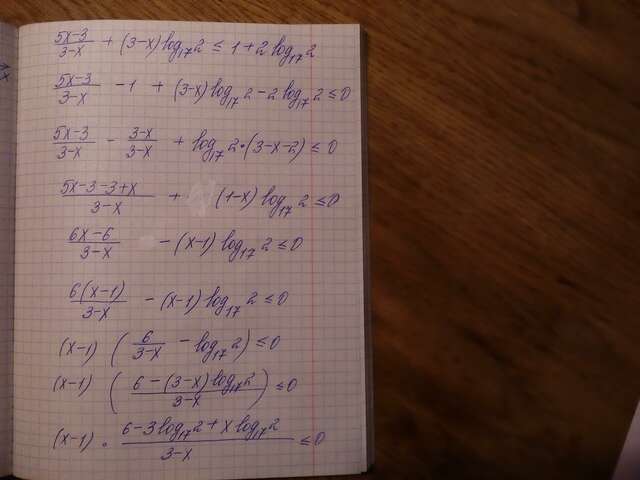 (5x-3)/(3-x) + (3-x)log₁₇2 ≤ 1+2log₁₇2
(5x-3)/(3-x) - 1 + (3-x)log₁₇2 - 2log₁₇2 ≤ 0
(5x-3)/(3-x) - (3-x)/(3-x) + log₁₇2•(3-x-2) ≤ 0
(5x-3-3+x)/(3-x) + (1-x)log₁₇2 ≤ 0
(6x-6)/(3-x) - (x-1)log₁₇2 ≤ 0
(6(x-1))/(3-x) - (x-1)log₁₇2 ≤ 0
(x-1) (6/(3-x) - log₁₇2) ≤ 0
(x-1) ((6-(3-x)log₁₇2)/(3-x)) ≤ 0
(x-1) • (6-3log₁₇2+xlog₁₇2)/(3-x) ≤ 0